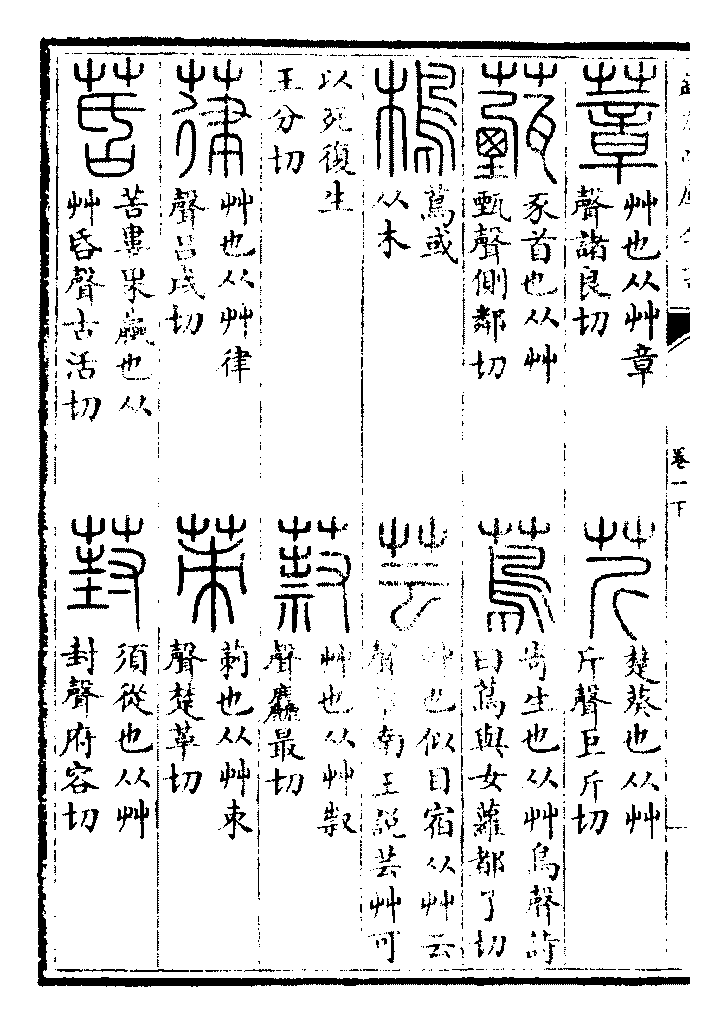 卷一下
蔁
艸也从艸章
聲諸良切
芹
楚葵也从艸
斤聲巨斤切
薽
豕首也从艸
甄聲側鄰切
蔦
寄生也从艸鳥聲詩
曰蔦與女蘿都了切
樢
蔦或
从木
芸
艸也似目宿从艸云
聲淮南王說芸艸可
以死復生
王分切
艸也从艸
聲麤最切
葎
艸也从艸律
聲呂戌切
茦
莿也从艸朿
聲楚革切
苦婁果蠃也从
艸昏聲古活切
葑
須從也从艸
封聲府容切